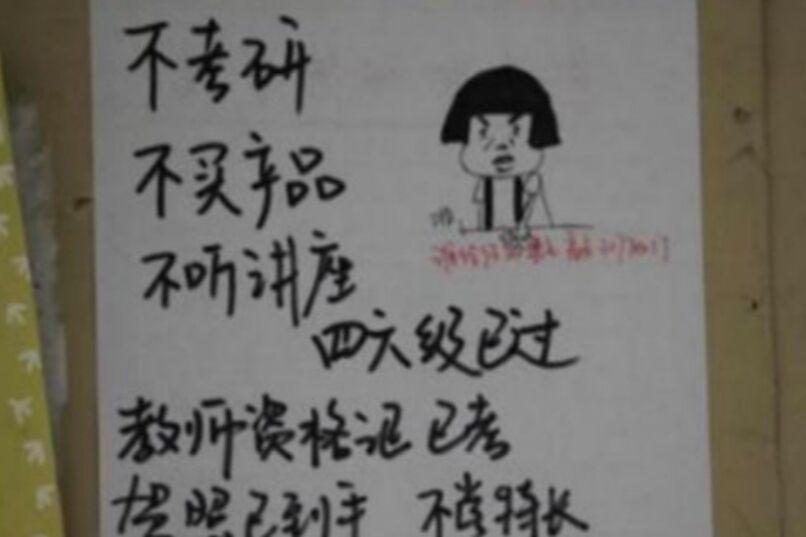 不考研
不买产品
不听讲座
四六级已过
教师资格证已考
驾照已到手 不学特长